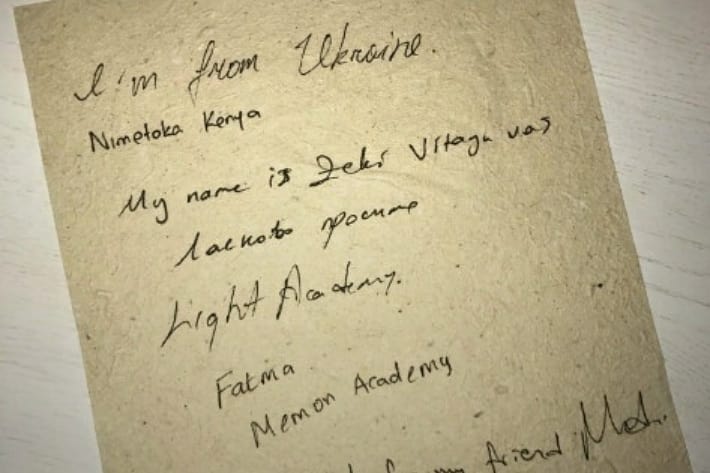 I'm from Ukraine.
Nimetoka Kenya
My name is Zeki Vitayu vas
Ласкаво просимо
Light Academy.
Fatma
Memon Academy
my friend